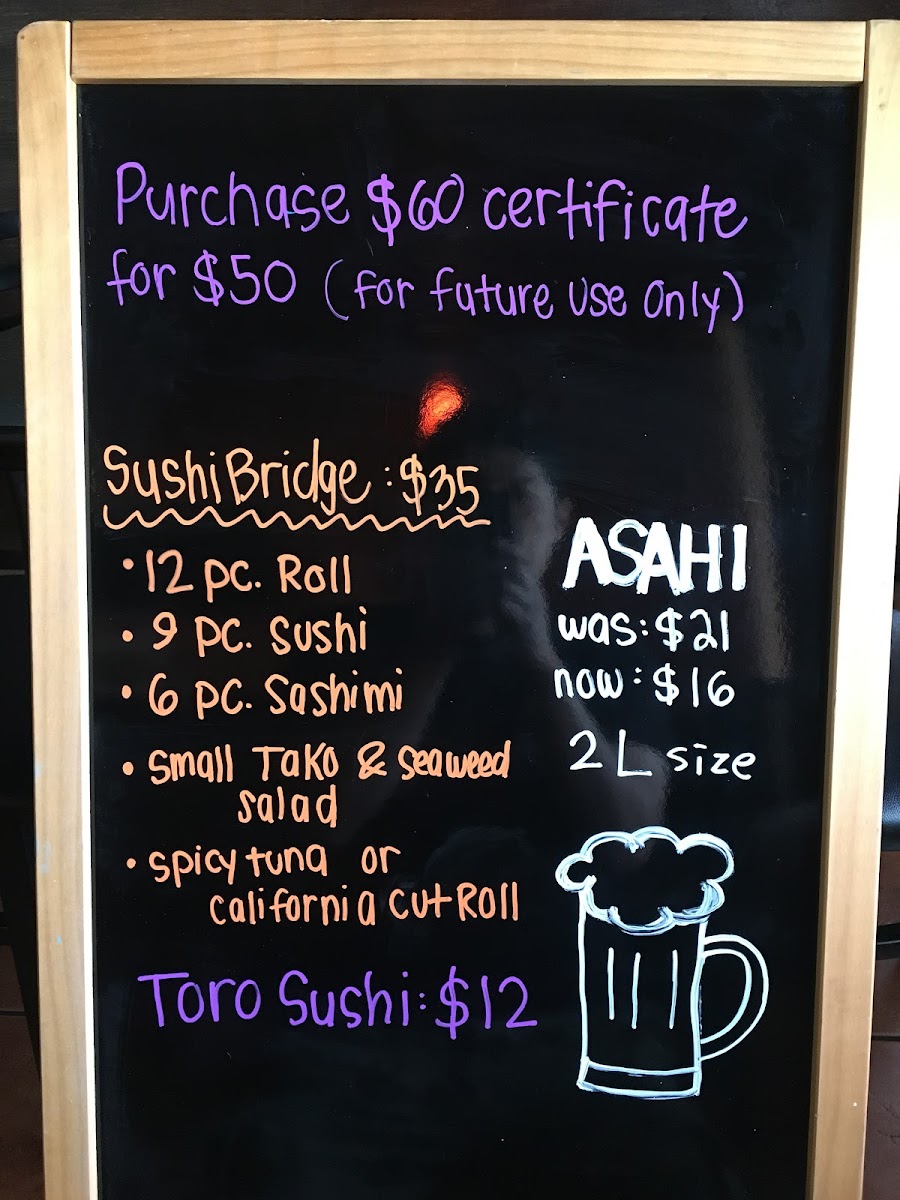 Purchase $60 certificate
for $50 (for future use only)
Sushi Bridge : $35
• 12 pc. Roll
• 9 pc. Sushi
• 6 pc. Sashimi
• Small Tako & seaweed
salad
• spicy tuna or
california cut Roll
Toro Sushi: $12
ASAHI
was: $21
now: $16
2 L size